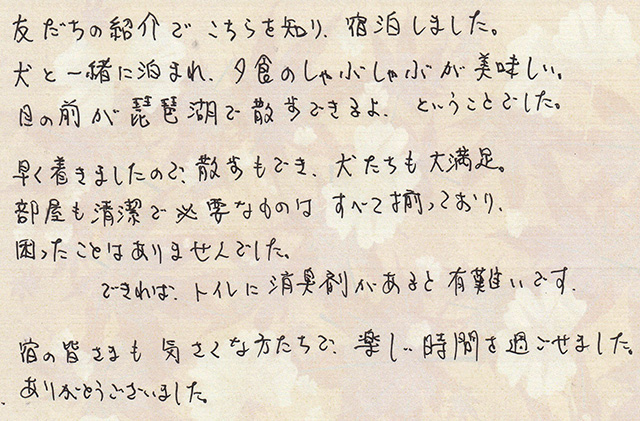 友だちの紹介でこちらを知り、宿泊しました。
犬と一緒に泊まれ、夕食のしゃぶしゃぶが美味しい。
目の前が琵琶湖で散歩できるよ、ということでした。
早く着きましたので、散歩もでき、犬たちも大満足。
部屋も清潔で必要なものはすべて揃っており、
困ったことはありませんでした。
できれば、トイレに消臭剤があると有難いです。
宿の皆さまも気さくな方たちで、楽しい時間を過ごせました。
ありがとうございました。